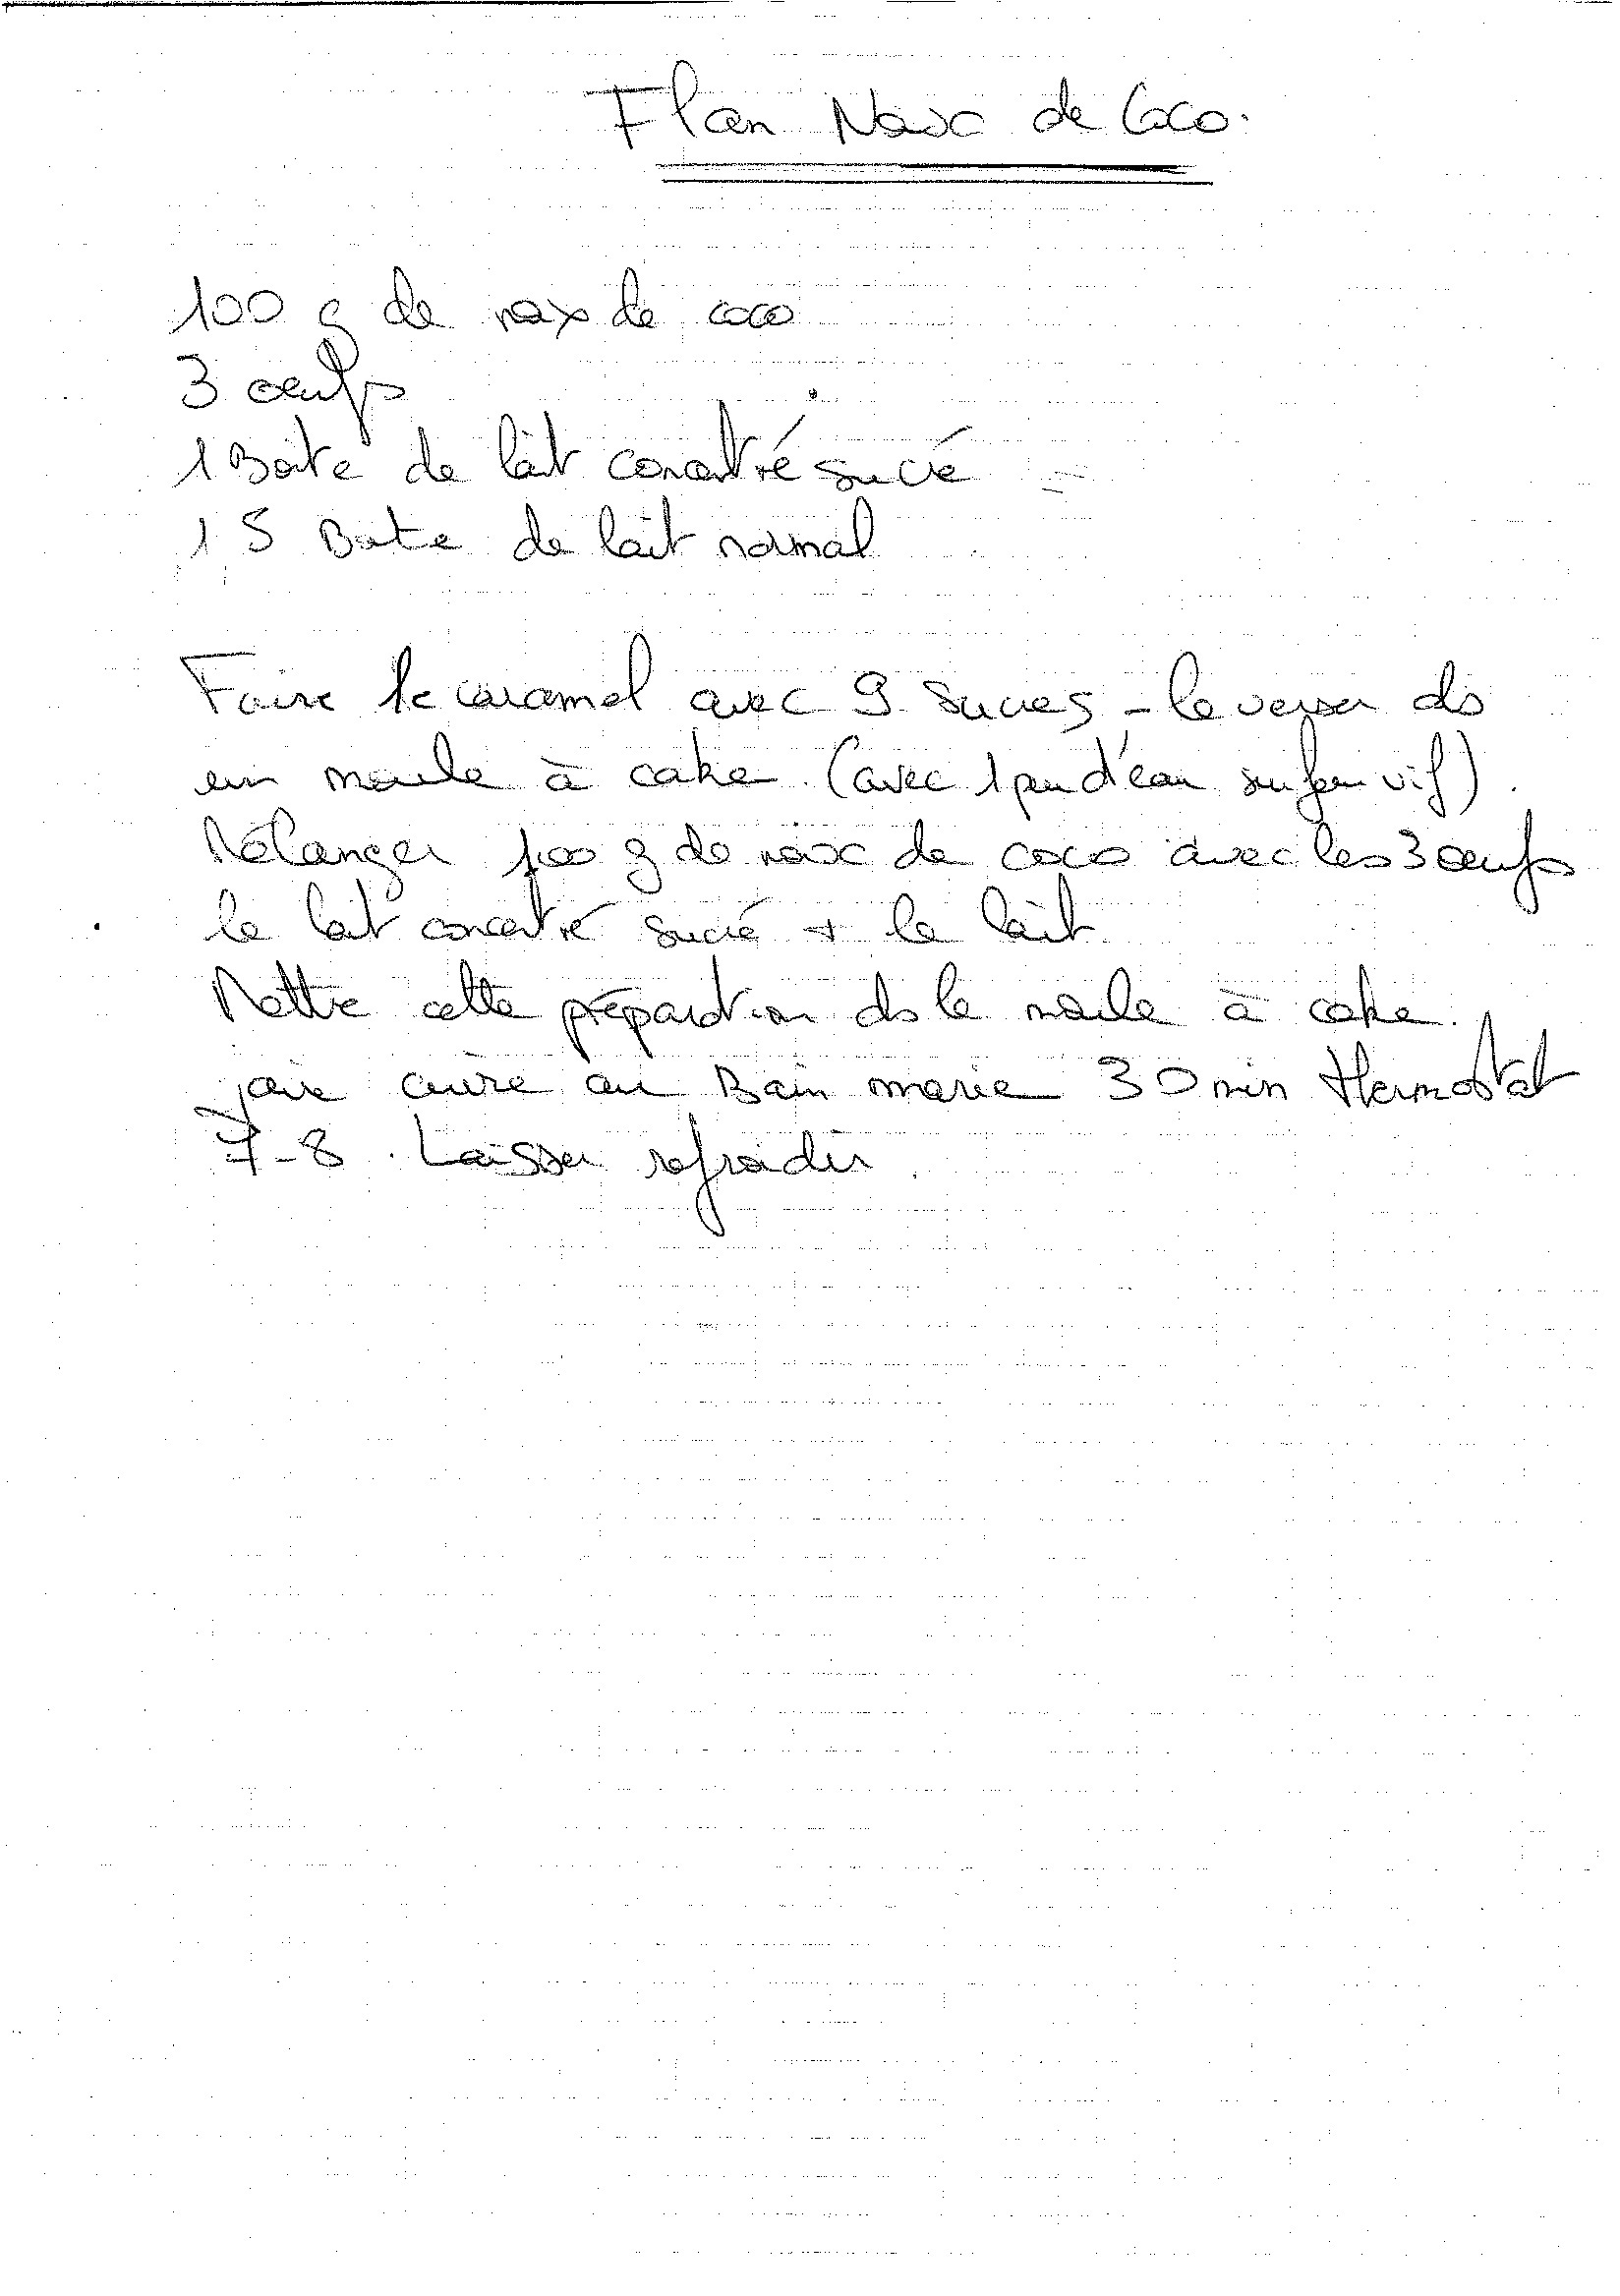 Flan Noix de Coco.
100 g de noix de coco
3 oeufs
1 Boite de lait concentré sucré
1 5 Boite de lait normal
Faire le caramel avec 9 sucres - le verser ds
un moule à cake. (avec 1 peu d'eau sur feu vif).
Mélanger 100 g de noix de coco avec les 3 oeufs
le lait concentré sucré + le lait.
Mettre cette préparation ds le moule à cake.
faire cuire au Bain marie 30 min thermostat
7-8. Laisser refroidir.